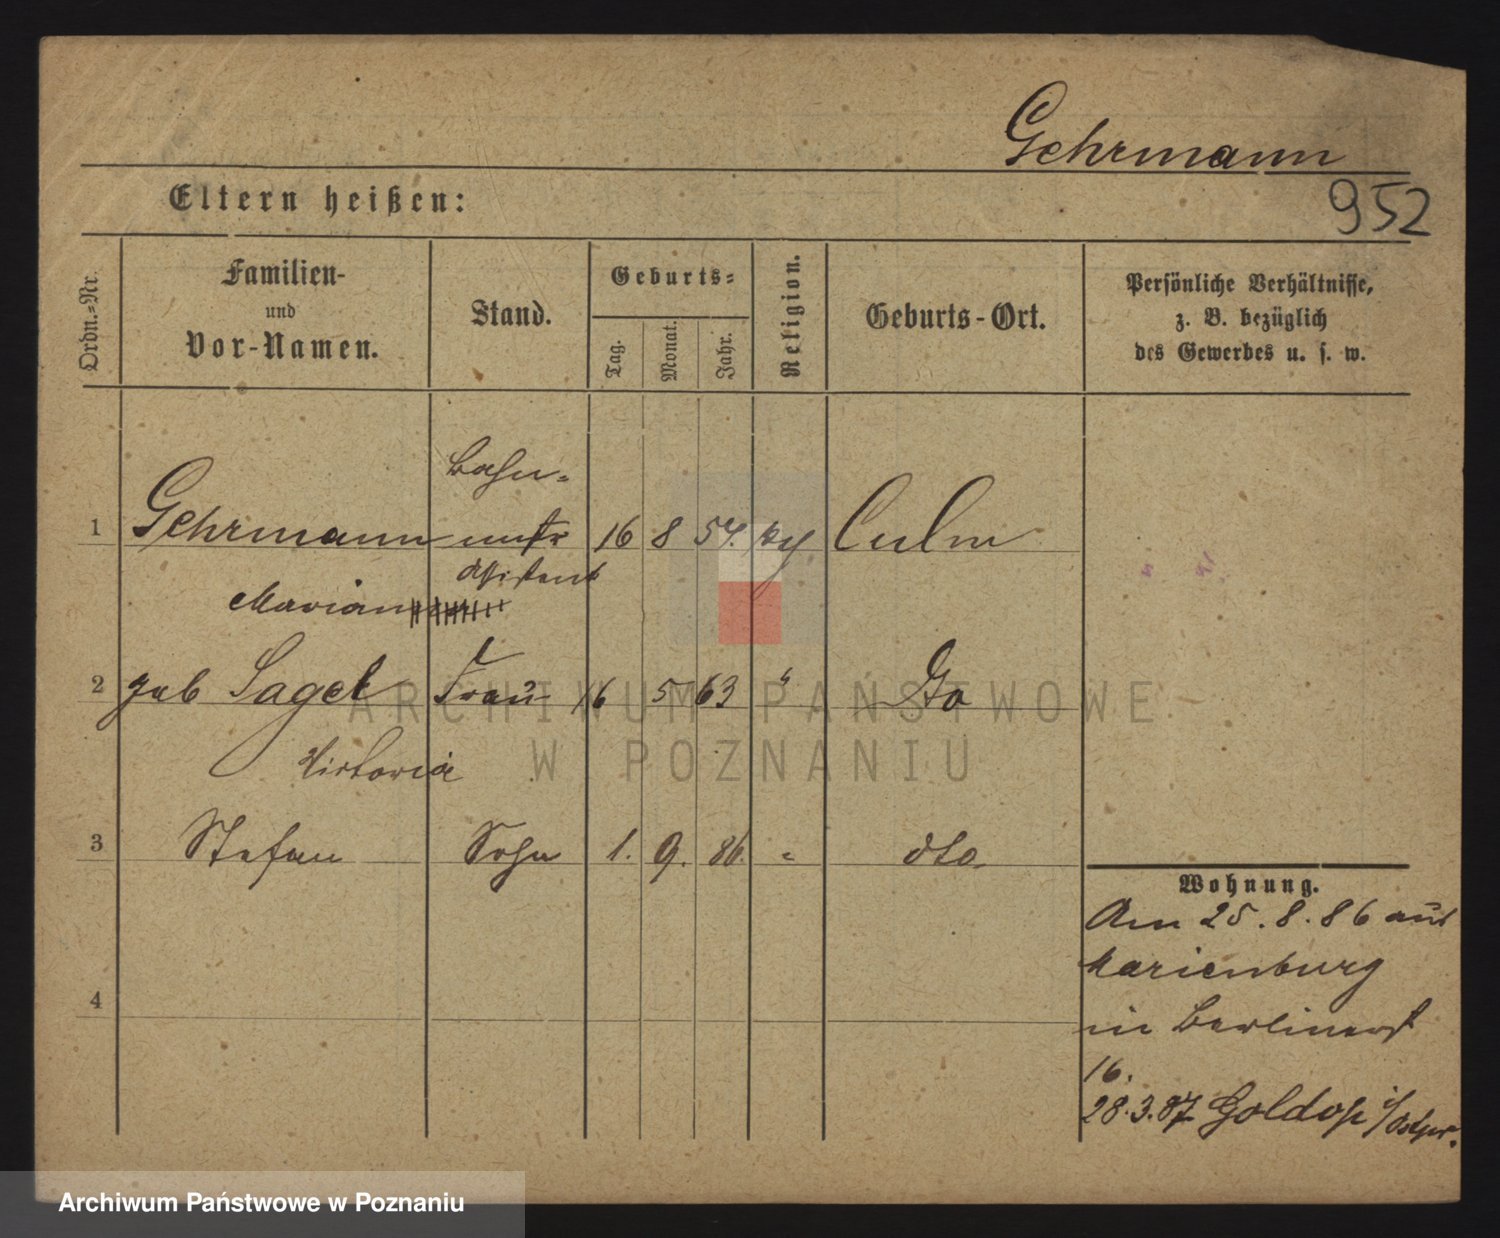 Gehrmann
952
Eltern heißen:
Ordn.=Nr.
Familien-
und
Vor-Namen.
Stand.
Geburts=
Tag.
Monat.
Jahr.
Religion.
Geburts-Ort.
Persönliche Verhältnisse,
z. B. bezüglich
des Gewerbes u. s. w.
Bahn=
1 Gehrmann 16 8 57. Culm
Assistent
Marian
2 geb Sagel Frau 16 5 63 " Dto
Victoria
3 Stefan Sohn 1. 9. 86. " dto.
4
Wohnung.
Am 25.8.86 aus
Marienburg
in Berlinerst
16.
28.3.87 Goldap i/Ostpr.
ARCHIWUM PAŃSTWOWE
W POZNANIU
Archiwum Państwowe w Poznaniu